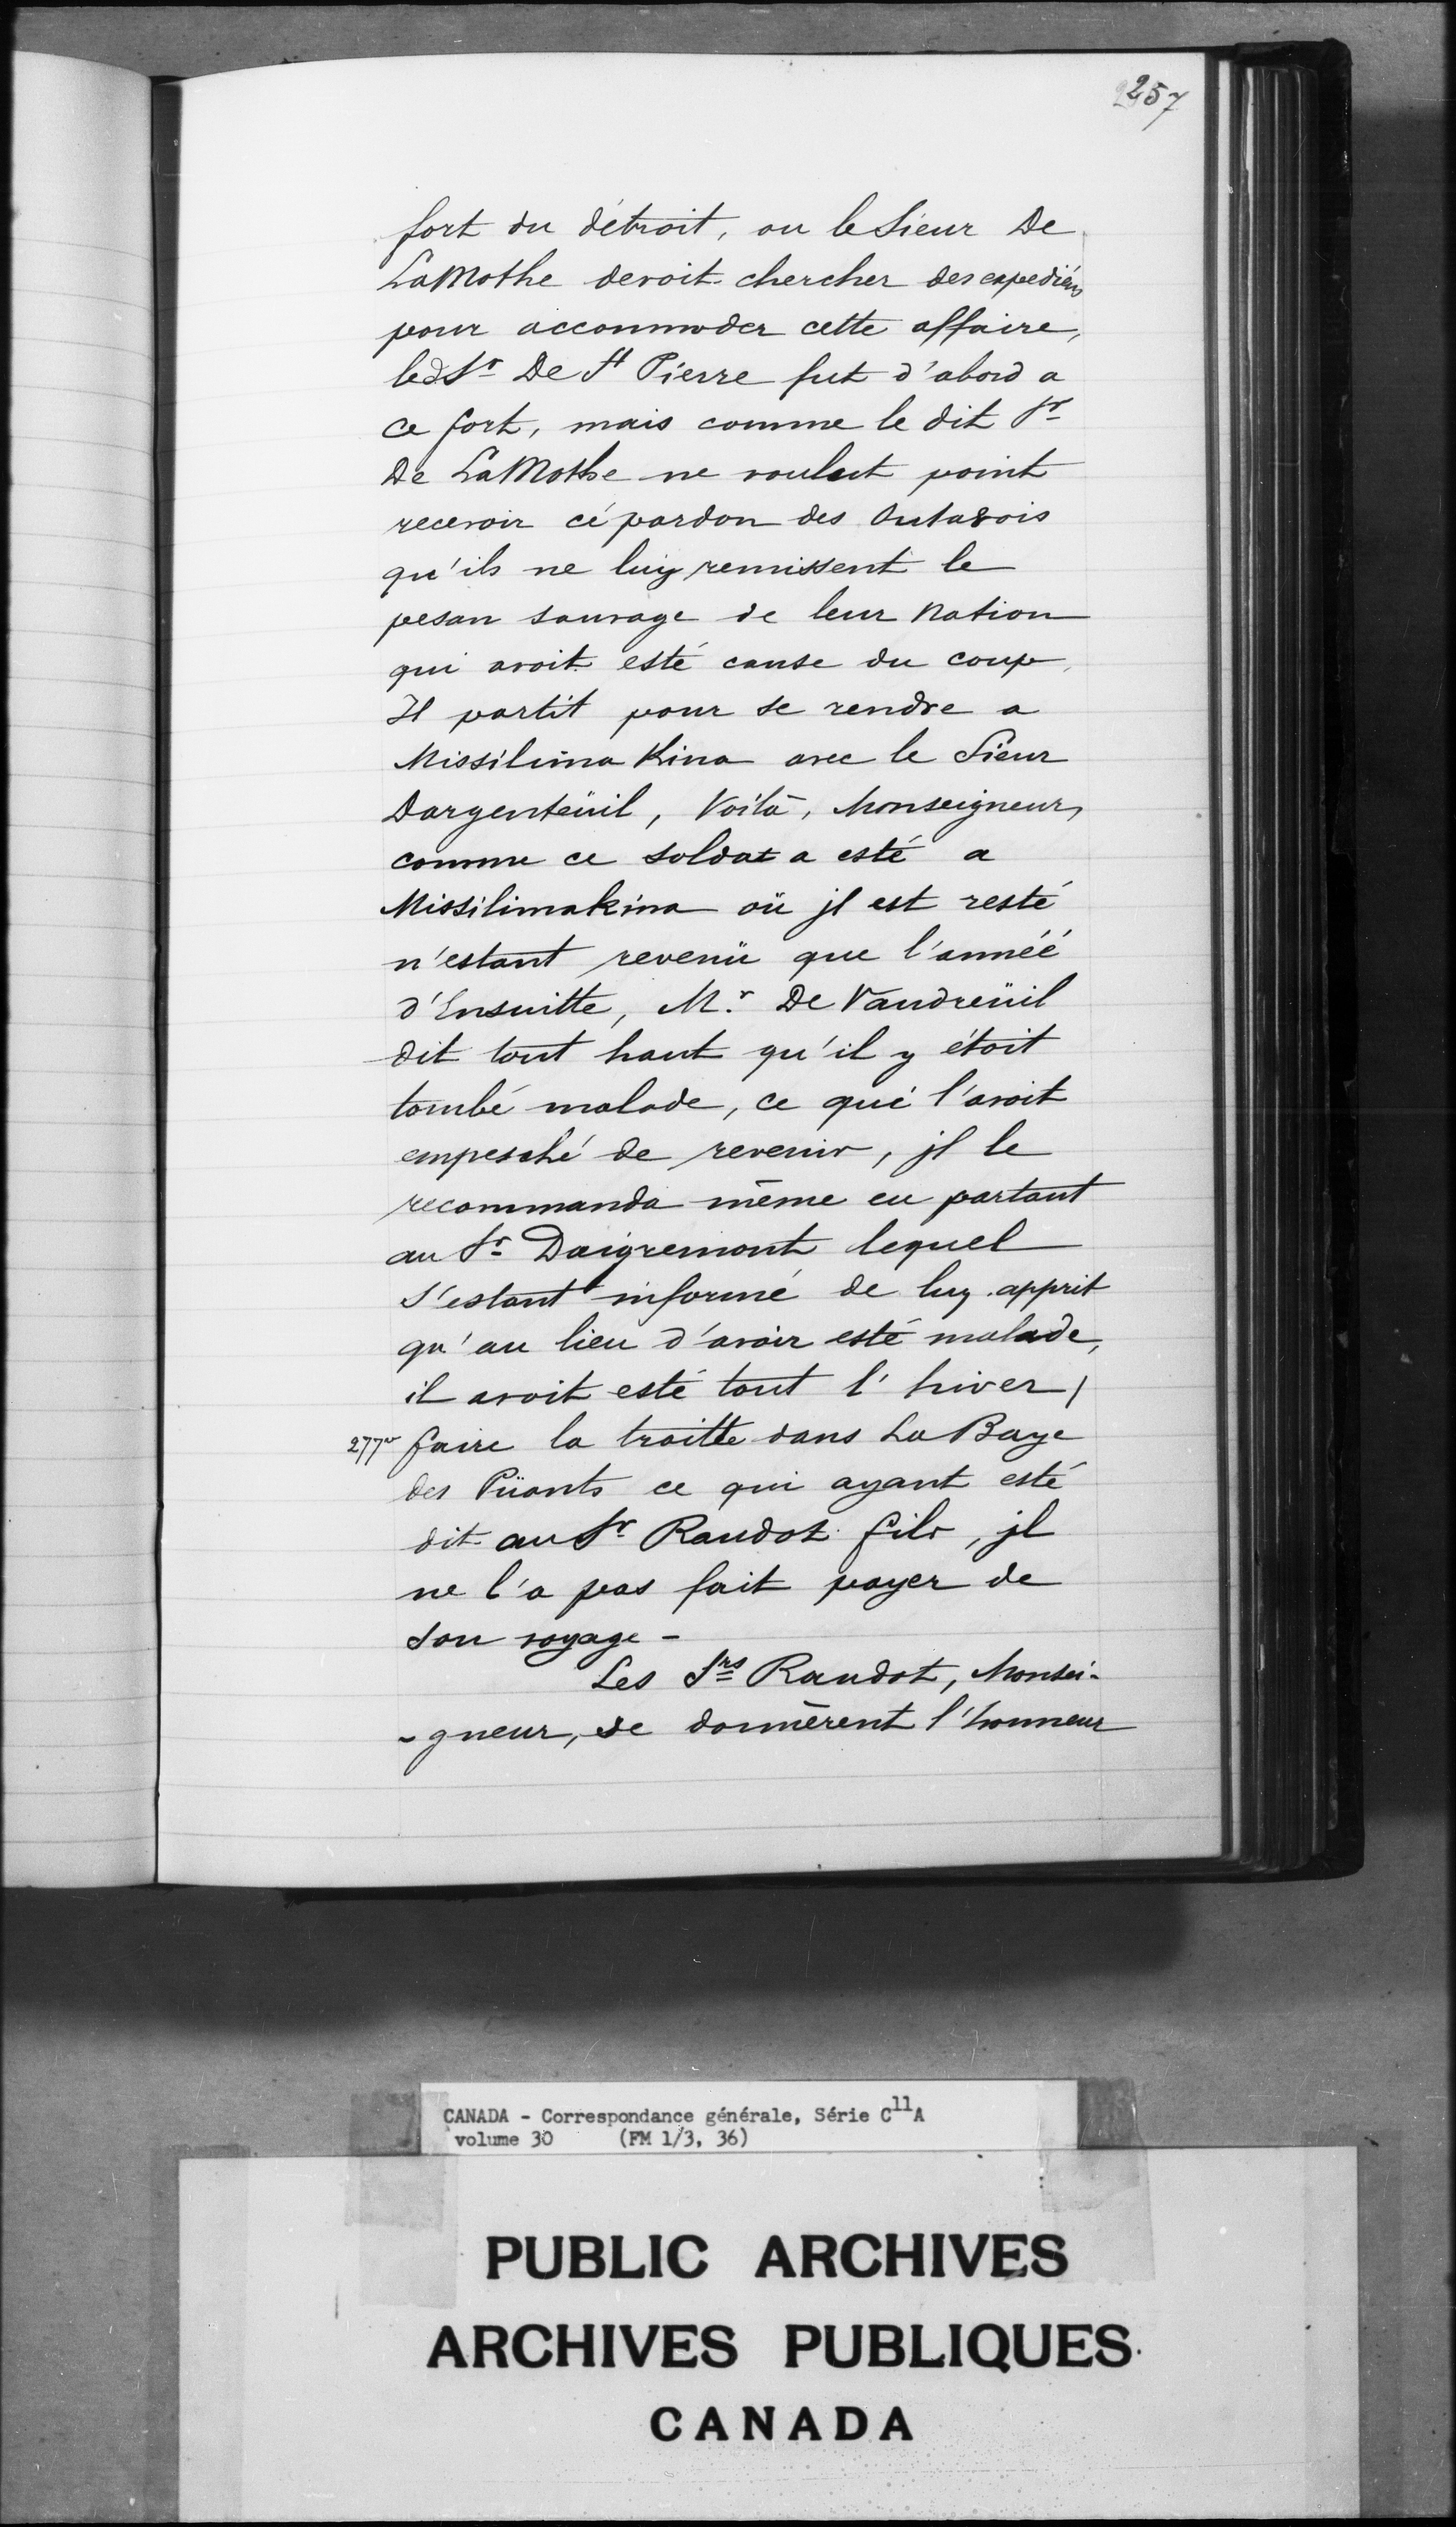 257
fort du détroit, ou le Sieur De
LaMothe devoit chercher des expediéns
pour accommoder cette affaire,
led Sr De St Pierre fut d'abord a
ce fort, mais comme le dit Sr
De LaMothe ne voulut point
recevoir cé pardon des Outa8ois
qu'ils ne luy remissent le
pesan sauvage de leur Nation
qui avoit esté cause du coup,
Il partit pour se rendre a
Missilima Kina avec le Sieur
Dargenteüil, Voilà, Monseigneur,
comme ce soldat a esté a
Missilimakina oü jl est resté
n'estant revenü que l'annéé
d'Ensuitte, Mr De Vaudreüil
dit tout haut qu'il y étoit
tombé malade, ce qui l'avoit
empesché de revenir, jl le
recommanda même en partant
au Sr Daigremont lequel
s'estant informé de luy apprit
qu'au lieu d'avoir esté malade,
il avoit esté tout l'hiver /
277v faire la traitte dans La Baye
des Püants ce qui ayant esté
dit au Sr Raudot fils, jl
ne l'a pas fait payer de
son voyage -
Les Srs Raudot, Monsei-
- gneur, se donnèrent l'honneur
CANADA - Correspondance générale, Série C11A
volume 30 (FM 1/3, 36)
PUBLIC ARCHIVES
ARCHIVES PUBLIQUES
CANADA